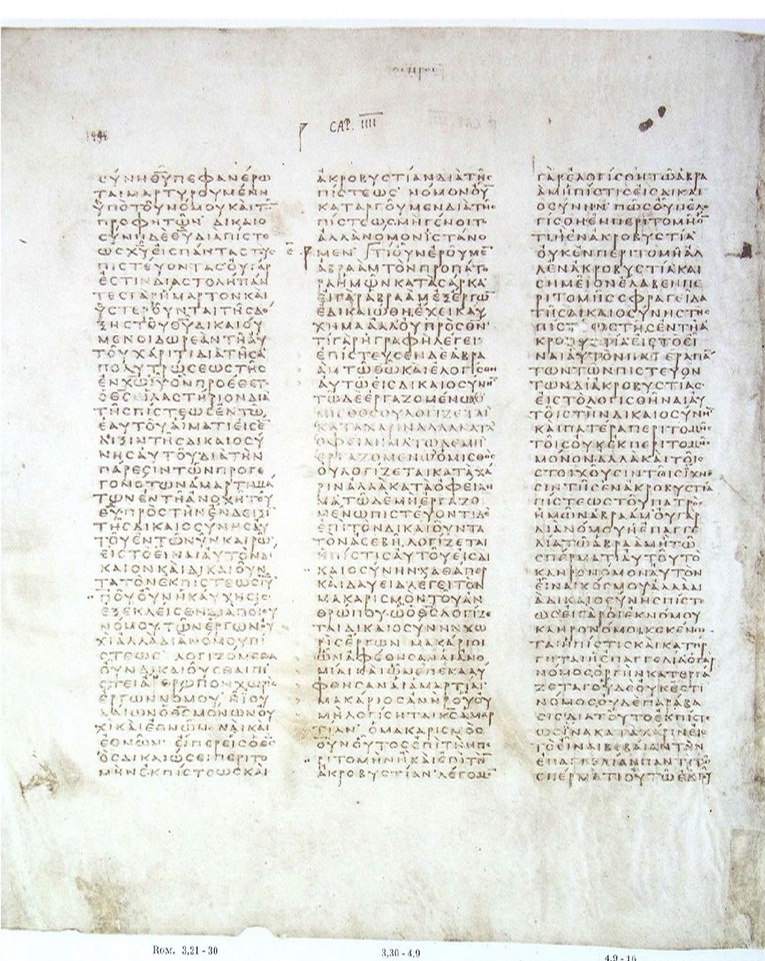 1446
CAP. IIII
CΥΝΗΘΥΠΕΦΑΝΕΡΩ
ΤΑΙΜΑΡΤΥΡΟΥΜΕΝΗ
ΥΠΟΤΟΥΝΟΜΟΥΚΑΙΤ
ΠΡΟΦΗΤΩΝ ΔΙΚΑΙΟ
CΥΝΗΔΕΘΥΔΙΑΠΙCΤΕ
ΩCΧΥΕΙCΠΑΝΤΑCΤΟΥ
ΠΙCΤΕΥΟΝΤΑCΟΥΓΑΡ
ΕCΤΙΝΔΙΑCΤΟΛΗΠΑΝ
ΤΕCΓΑΡΗΜΑΡΤΟΝΚΑΙ
ΥCΤΕΡΟΥΝΤΑΙΤΗCΔΟ
ΞΗCΤΟΥΘΥΔΙΚΑΙΟΥ
ΜΕΝΟΙΔΩΡΕΑΝΤΗΑΥ
ΤΟΥΧΑΡΙΤΙΔΙΑΤΗCΑ
ΠΟΛΥΤΡΩCΕΩCΤΗC
ΕΝΧΩΙΥΟΝΠΡΟΕΘΕΤ
ΟΘCΙΛΑCΤΗΡΙΟΝΔΙΑ
ΤΗCΠΙCΤΕΩCΕΝΤΩ
ΕΑΥΤΟΥΑΙΜΑΤΙΕΙCΕ
ΔΙΞΙΝΤΗCΔΙΚΑΙΟCΥ
ΝΗCΑΥΤΟΥΔΙΑΤΗΝ
ΠΑΡΕCΙΝΤΩΝΠΡΟΓΕ
ΓΟΝΟΤΩΝΑΜΑΡΤΗΜΑ
ΤΩΝΕΝΤΗΑΝΟΧΗΤΟΥ
ΘΥΠΡΟCΤΗΝΕΝΔΕΙΞΙ
ΤΗCΔΙΚΑΙΟCΥΝΗCΑΥ
ΤΟΥΕΝΤΩΝΥΝΚΑΙΡΩ
ΕΙCΤΟΕΙΝΑΙΑΥΤΟΝΔΙ
ΚΑΙΟΝΚΑΙΔΙΚΑΙΟΥΝ
ΤΑΤΟΝΕΚΠΙCΤΕΩCΙΥ
ΠΟΥΟΥΝΗΚΑΥΧΗCΙC
ΕΞΕΚΛΕΙCΘΗΔΙΑΠΟΙΟΥ
ΝΟΜΟΥΤΩΝΕΡΓΩΝΟΥ
ΧΙΑΛΛΑΔΙΑΝΟΜΟΥΠΙ
CΤΕΩC ΛΟΓΙΖΟΜΕΘΑ
ΟΥΝΔΙΚΑΙΟΥCΘΑΙΠΙ
CΤΕΙΑΝΘΡΩΠΟΝΧΩΡΙC
ΕΡΓΩΝΝΟΜΟΥ ΗΙΟΥ
ΔΑΙΩΝΟΘCΜΟΝΩΝΟΥ
ΧΙΚΑΙΕΘΝΩΝ ΝΑΙΚΑΙ
ΕΘΝΩΝ ΕΙΠΕΡΕΙCΟΘC
ΟCΔΙΚΑΙΩCΕΙΠΕΡΙΤΟ
ΜΗΝΕΚΠΙCΤΕΩCΚΑΙ
ΑΚΡΟΒΥCΤΙΑΝΔΙΑΤΗC
ΠΙCΤΕΩC ΝΟΜΟΝΟΥ
ΚΑΤΑΡΓΟΥΜΕΝΔΙΑΤΗC
ΠΙCΤΕΩCΜΗΓΕΝΟΙΤΟ
ΑΛΛΑΝΟΜΟΝΙCΤΑΝΟ
ΜΕΝ ΤΙΟΥΝΕΡΟΥΜΕ
ΑΒΡΑΑΜΤΟΝΠΡΟΠΑΤΟ
ΡΑΗΜΩΝΚΑΤΑCΑΡΚΑ
ΕΙΓΑΡΑΒΡΑΑΜΕΞΕΡΓΩ
ΕΔΙΚΑΙΩΘΗΕΧΕΙΚΑΥ
ΧΗΜΑΑΛΛΟΥΠΡΟCΘΝ
ΤΙΓΑΡΗΓΡΑΦΗΛΕΓΕΙ
ΕΠΙCΤΕΥCΕΝΔΕΑΒΡΑ
ΑΜΤΩΘΩΚΑΙΕΛΟΓΙCΘΗ
ΑΥΤΩΕΙCΔΙΚΑΙΟCΥΝΗ
ΤΩΔΕΕΡΓΑΖΟΜΕΝΩΟ
ΜΙCΘΟCΟΥΛΟΓΙΖΕΤΑΙ
ΚΑΤΑΧΑΡΙΝΑΛΛΑΚΑΤΑ
ΟΦΕΙΛΗΜΑΤΩΔΕΜΗ
ΕΡΓΑΖΟΜΕΝΩΟΜΙCΘΟC
ΟΥΛΟΓΙΖΕΤΑΙΚΑΤΑΧΑ
ΡΙΝΑΛΛΑΚΑΤΑΟΦΕΙΛΗ
ΜΑΤΩΔΕΜΗΕΡΓΑΖΟ
ΜΕΝΩΠΙCΤΕΥΟΝΤΙΔΕ
ΕΠΙΤΟΝΔΙΚΑΙΟΥΝΤΑ
ΤΟΝΑCΕΒΗΛΟΓΙΖΕΤΑΙ
ΗΠΙCΤΙCΑΥΤΟΥΕΙCΔΙ
ΚΑΙΟCΥΝΗΝΚΑΘΑΠΕΡ
ΚΑΙΔΑΥΕΙΔΛΕΓΕΙΤΟΝ
ΜΑΚΑΡΙCΜΟΝΤΟΥΑΝ
ΘΡΩΠΟΥΩΟΘCΛΟΓΙΖΕ
ΤΑΙΔΙΚΑΙΟCΥΝΗΝΧΩ
ΡΙCΕΡΓΩΝ ΜΑΚΑΡΙΟΙ
ΩΝΑΦΕΘΗCΑΝΑΙΑΝΟ
ΜΙΑΙΚΑΙΩΝΕΠΕΚΑΛΥ
ΦΘΗCΑΝΑΙΑΜΑΡΤΙΑΙ
ΜΑΚΑΡΙΟCΑΝΗΡΟΥΟΥ
ΜΗΛΟΓΙCΗΤΑΙΚCΑΜΑΡ
ΤΙΑΝ ΟΜΑΚΑΡΙCΜΟC
ΟΥΝΟΥΤΟCΕΠΙΤΗΝΠΕ
ΡΙΤΟΜΗΝΗΚΑΙΕΠΙΤΗ
ΑΚΡΟΒΥCΤΙΑΝ ΛΕΓΟΜΕ
ΓΑΡΕΛΟΓΙCΘΗΤΩΑΒΡΑ
ΑΜΗΠΙCΤΙCΕΙCΔΙΚΑΙ
ΟCΥΝΗΝ ΠΩCΟΥΝΕΛΟ
ΓΙCΘΗΕΝΠΕΡΙΤΟΜΗ
ΤΙΗΕΝΑΚΡΟΒΥCΤΙΑ
ΟΥΚΕΝΠΕΡΙΤΟΜΗΑΛ
ΛΕΝΑΚΡΟΒΥCΤΙΑΚΑΙ
CΗΜΕΙΟΝΕΛΑΒΕΝΠΕ
ΡΙΤΟΜΗCCΦΡΑΓΕΙΔΑ
ΤΗCΔΙΚΑΙΟCΥΝΗCΤΗC
ΠΙCΤΕΩCΤΗCΕΝΤΗΑ
ΚΡΟΒΥCΤΙΑΕΙCΤΟΕΙ
ΝΑΙΑΥΤΟΝΠΑΤΕΡΑΠΑ
ΤΩΝΤΩΝΠΙCΤΕΥΟΝ
ΤΩΝΔΙΑΚΡΟΒΥCΤΙΑC
ΕΙCΤΟΛΟΓΙCΘΗΝΑΙΑΥ
ΤΟΙCΤΗΝΔΙΚΑΙΟCΥΝΗ
ΚΑΙΠΑΤΕΡΑΠΕΡΙΤΟΜΗC
ΤΟΙCΟΥΚΕΚΠΕΡΙΤΟΜΗC
ΜΟΝΟΝΑΛΛΑΚΑΙΤΟΙC
CΤΟΙΧΟΥCΙΝΤΟΙCΙΧΝΕ
CΙΝΤΗCΕΝΑΚΡΟΒΥCΤΙΑ
ΠΙCΤΕΩCΤΟΥΠΑΤΡΟC
ΗΜΩΝΑΒΡΑΑΜΟΥΓΑΡ
ΔΙΑΝΟΜΟΥΗΕΠΑΓΓΕ
ΛΙΑΤΩΑΒΡΑΑΜΗΤΩ
CΠΕΡΜΑΤΙΑΥΤΟΥΤΟ
ΚΛΗΡΟΝΟΜΟΝΑΥΤΟΝ
ΕΙΝΑΙΚΟCΜΟΥΑΛΛΑΔΙ
ΑΔΙΚΑΙΟCΥΝΗCΠΙCΤ
ΩCΕΙΓΑΡΟΙΕΚΝΟΜΟΥ
ΚΛΗΡΟΝΟΜΟΙΚΕΚΕΝΩ
ΤΑΙΗΠΙCΤΙCΚΑΙΚΑΤΗΡ
ΓΗΤΑΙΗΕΠΑΓΓΕΛΙΑΟΓΑΡ
ΝΟΜΟCΟΡΓΗΝΚΑΤΕΡΓΑ
ΖΕΤΑΙΟΥΔΕΟΥΚΕCΤΙ
ΝΟΜΟCΟΥΔΕΠΑΡΑΒΑ
CΙCΔΙΑΤΟΥΤΟΕΚΠΙCΤ
ΩCΙΝΑΚΑΤΑΧΑΡΙΝΕΙ
ΤΟΕΙΝΑΙΒΕΒΑΙΑΝΤΗΝ
ΕΠΑΓΓΕΛΙΑΝΠΑΝΤΙΤΩ
CΠΕΡΜΑΤΙΟΥΤΩΕΚΤΟΥ
Rom. 3,21 - 30
3,30 - 4,9
4,9 - 16